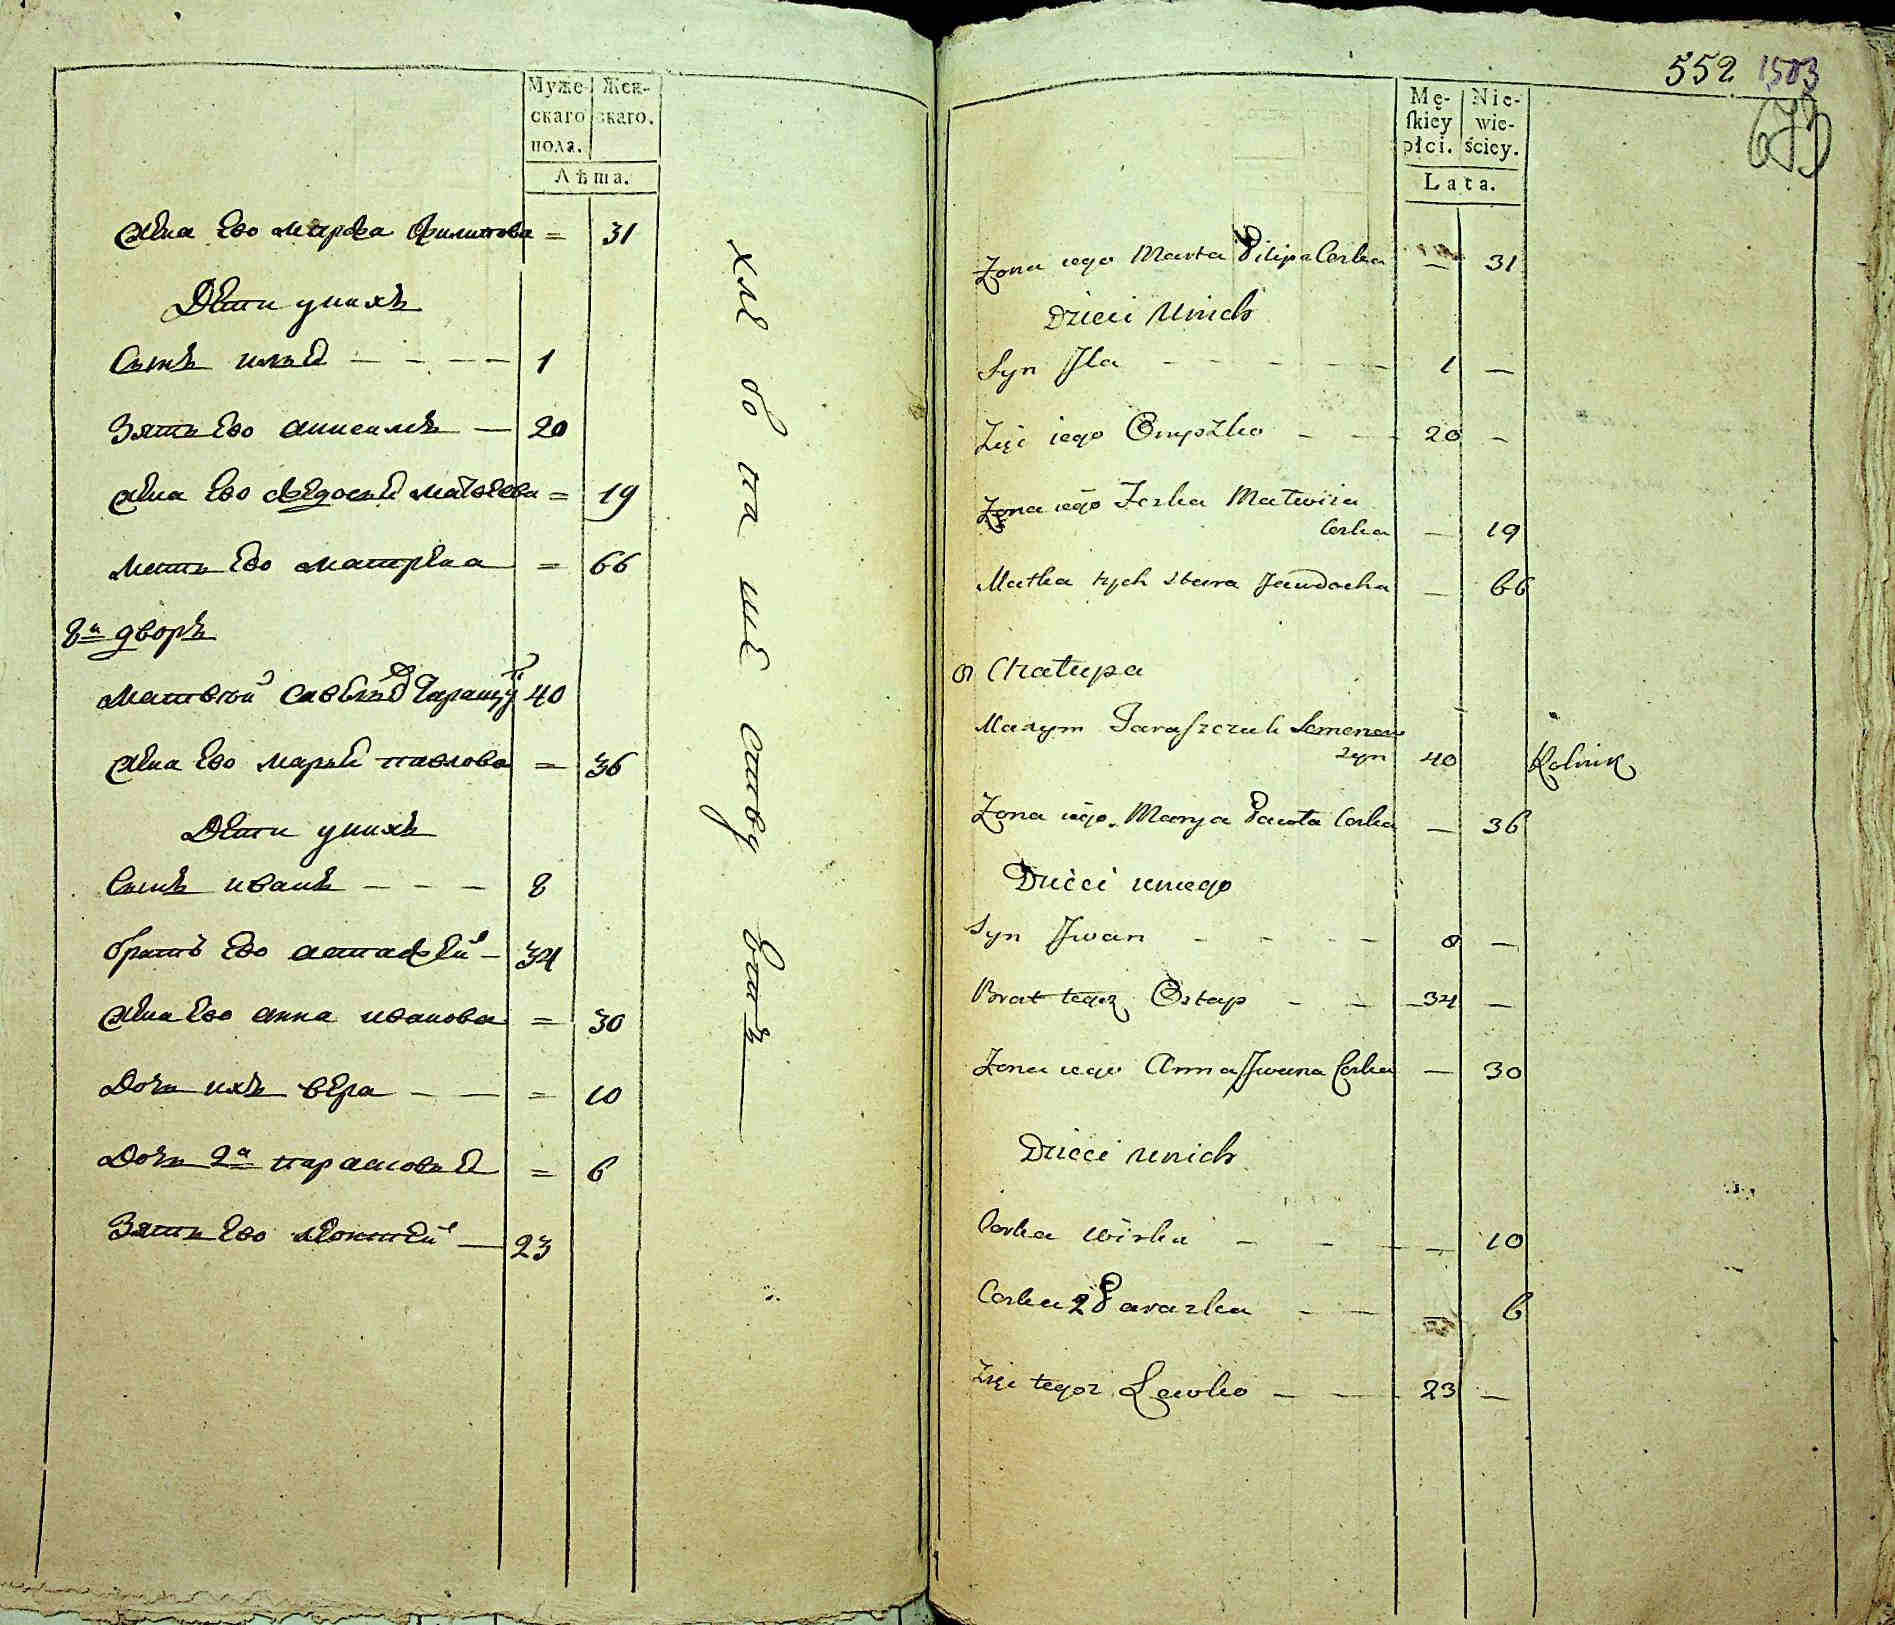 Муже- Жен-
скаго скаго.
пола.
Лѣта.
жена ево марфа филипова = 31
Дети уних
Сынъ илья - - - - 1
Зять ево анисимъ — 20
жена ево федосья матвеева = 19
мать ево матрена = 66
8й дворъ
матвей савельев Таращу 40
жена ево марья павлова = 36
Дети уних
Сынъ иванъ - - - 8
братъ ево астафей - 34
жена ево анна иванова = 30
Дочь ихъ вера - — = 10
Дочь 2я парасковья = 6
Зять ево — 23
хле бо па ше
552 1503
673
Mę- Nie-
ſkiey wie-
płci. ściey.
Lata.
Żona iego Marta Pilipa Corka — 31
Dzieci Unich
Syn Jla - - - - - 1 —
Zięć iego Onyszko - - - 20 -
Żona iego Feska Matwiia
Corka — 19
Matka tych stara Jawdocha — 66
8 Chałupa
Maxym Taraſzczuk Semenow
Syn 40 Rolnik
Żona iego Marya Pawła Corka — 36
Dzieci uniego
Syn Jwan - - - - 8 —
Brat tegoz Ostap - - 34 —
Żona iego Anna Jwana Corka — 30
Dzieci unich
Corka Wirka - - - — 10
Corka 2 Paraska - - — 6
Zięć tegoz Lewko - - 23 —